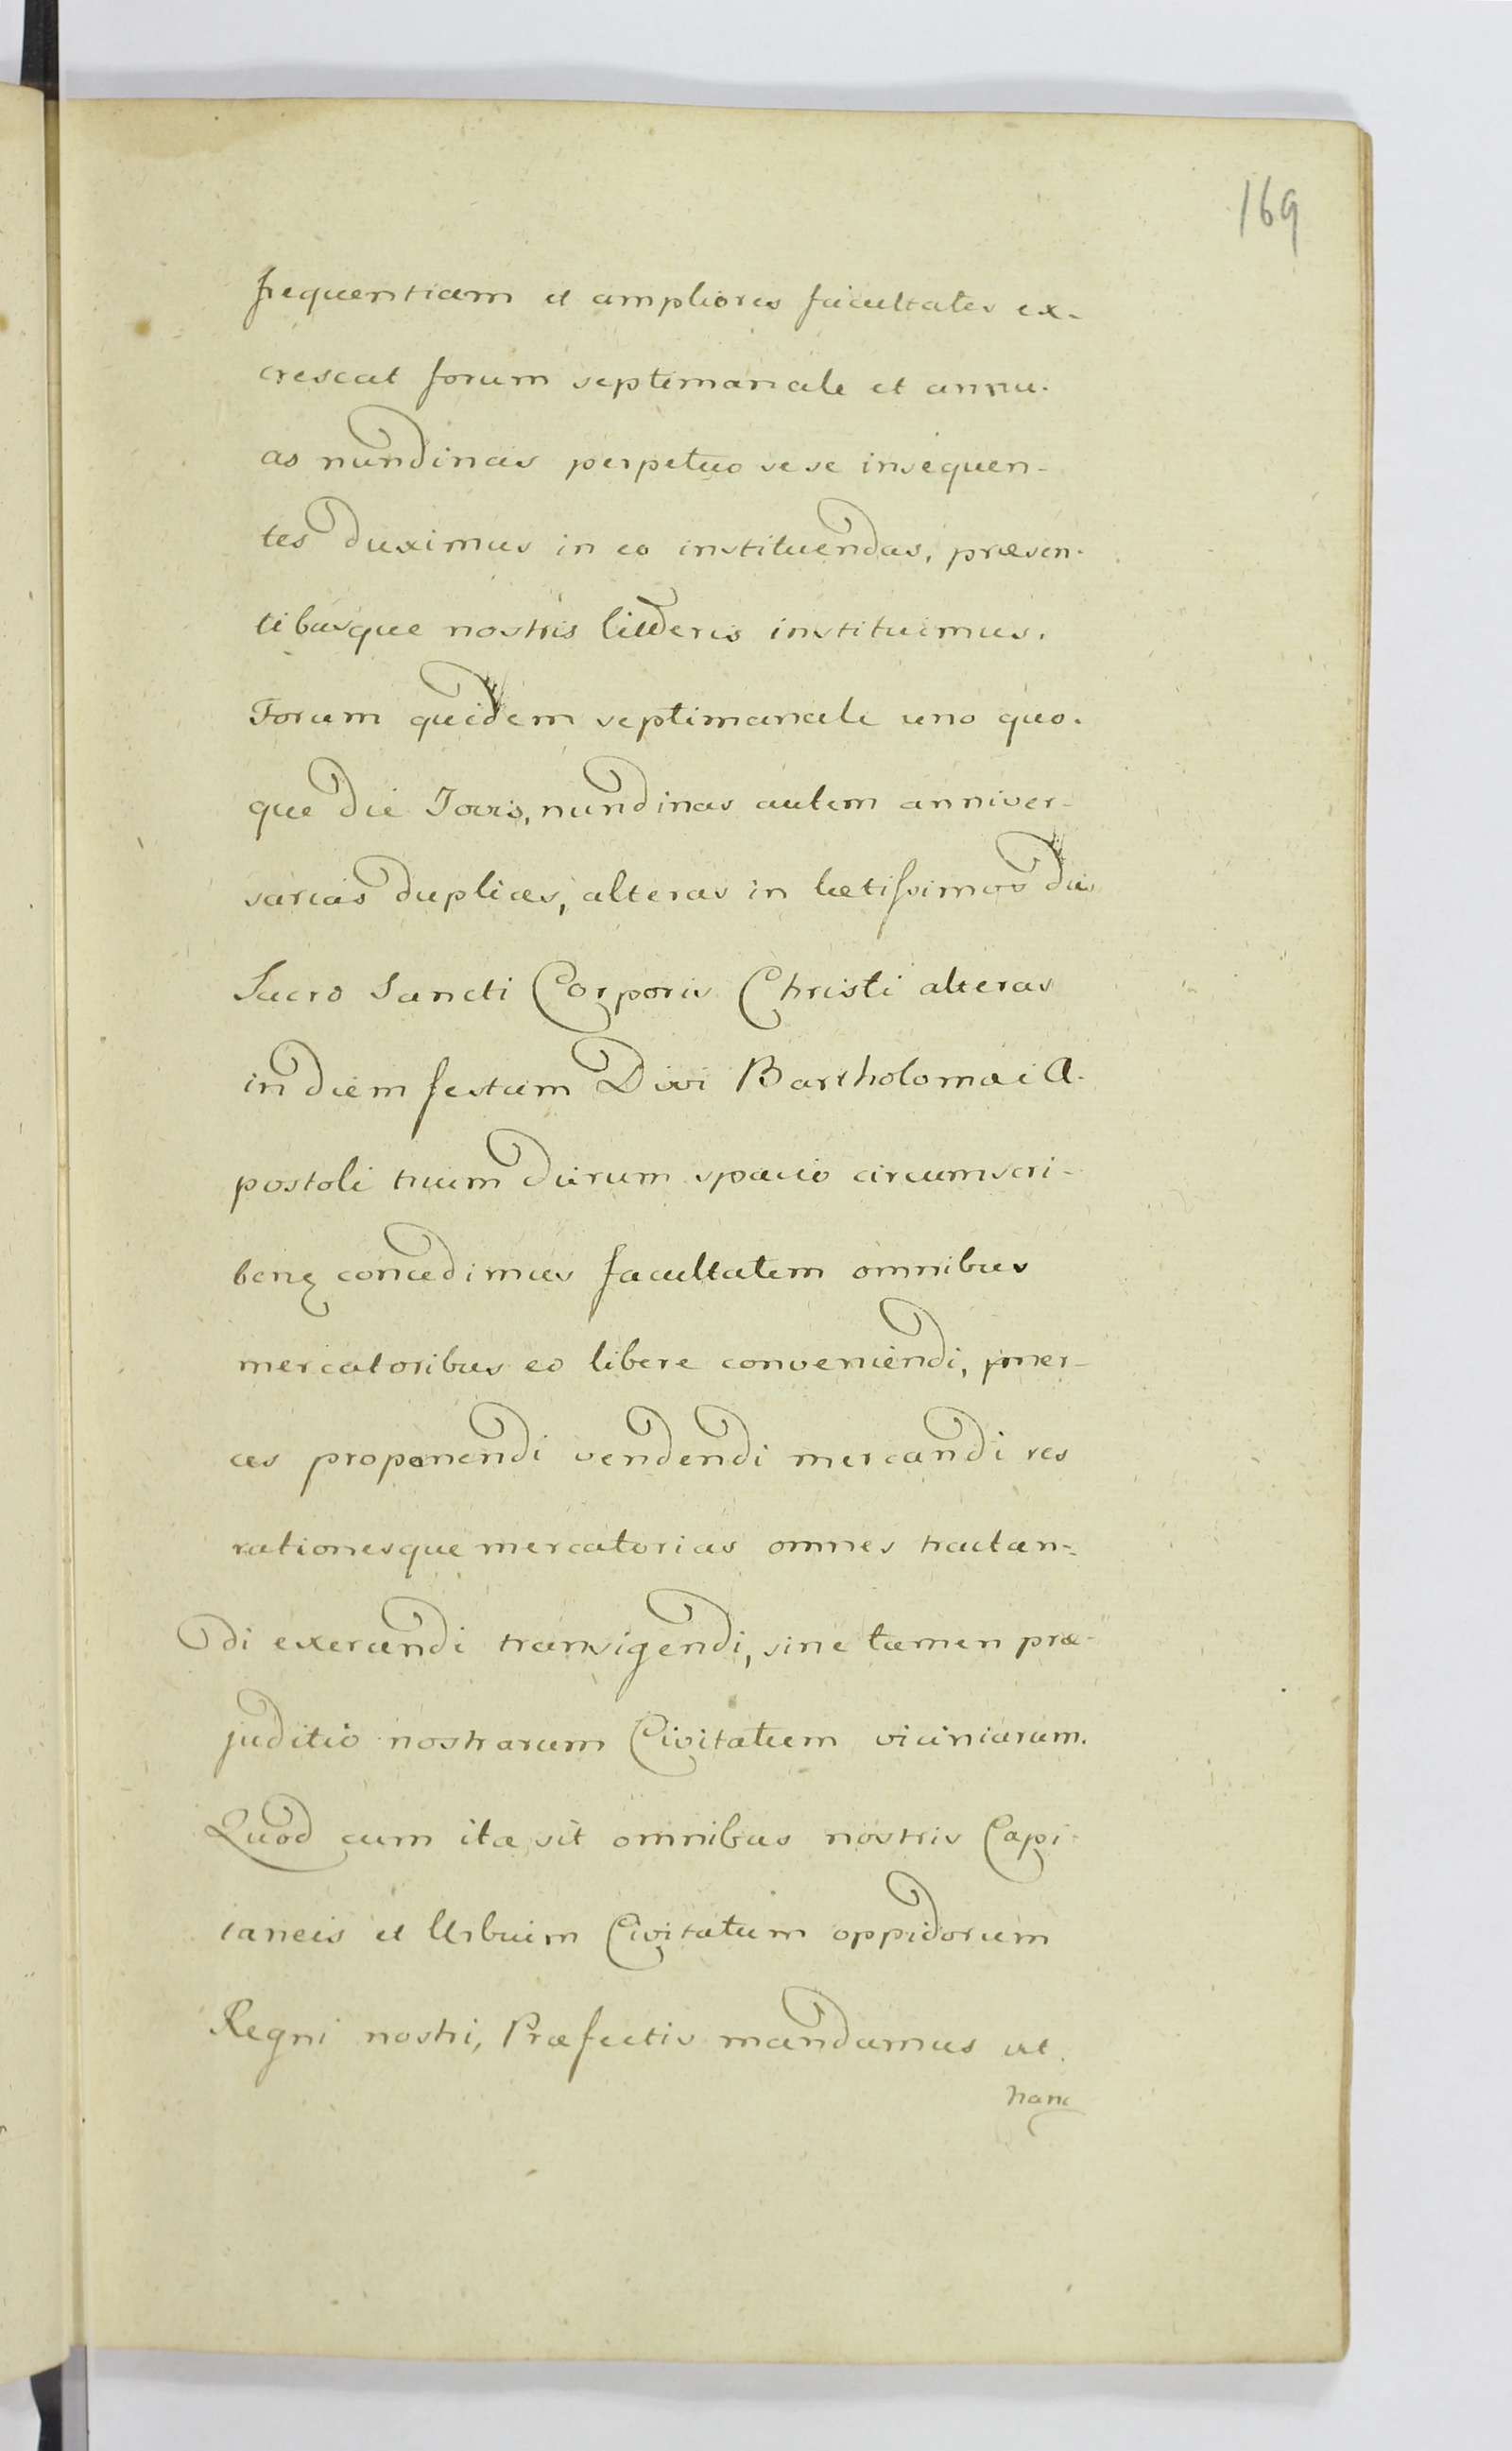 169
frequentiam et ampliores facultates ex-
crescat forum septimanale et annu-
as nundinas perpetuo sese insequen-
tes duximus in eo instituendas, præsen-
tibusque nostris litteris instituimus.
Forum quidem septimanale uno quo-
que die Jovis, nundinas autem anniver-
sarias duplices, alteras in lætissimos dies
Sacro Sancti Corporis Christi alteras
in diem festum Divi Bartholomæi A-
postoli trium dierum spacio circumscri-
ben concedimus facultatem omnibus
mercatoribus eo libere conveniendi, mer-
ces proponendi vendendi mercandi res
rationesque mercatorias omnes tractan-
di exercendi transigendi, sine tamen præ-
juditio nostrarum Civitatum viciniarum.
Quod cum ita sit omnibus nostris Capi-
taneis et Urbium Civitatum oppidorum
Regni nostri, Præfectis mandamus ut
hanc